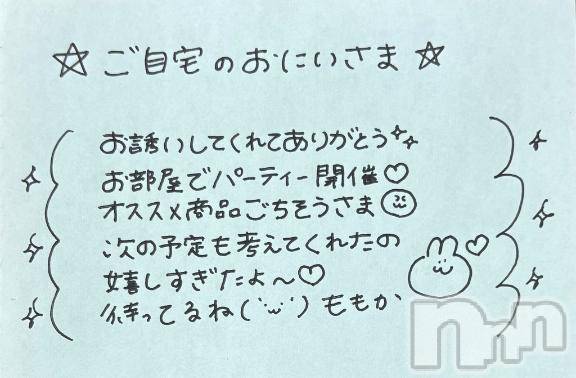 ☆ご自宅のおにいさま☆
お誘いしてくれてありがとう
お部屋でパーティー開催♡
オススメ商品ごちそうさま
次の予定も考えてくれたの
嬉しすぎたよ〜♡
待ってるね(˙ω˙)ももか